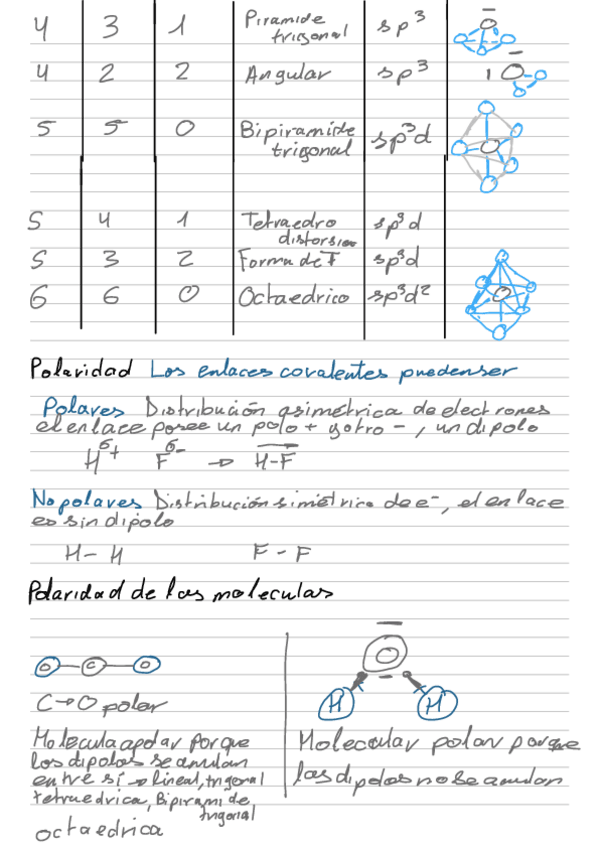 4 3 1 Piramide trigonal sp³
4 2 2 Angular sp³
5 5 0 Bipiramide trigonal sp³d
5 4 1 Tetraedro distorsion sp³d
5 3 2 Forma de T sp³d
6 6 0 Octaedrico sp³d²
Polaridad Los enlaces covalentes pueden ser
Polares Distribución asimétrica de electrones
el enlace posee un polo + y otro -, un dipolo
H δ+ F δ- → H-F
No polares Distribución simétrica de e⁻, el enlace
es sin dipolo
H-H F-F
Polaridad de las moleculas
O C O
O
H H
C→O polar
Molecula apolar porque
los dipolos se anulan
entre sí → lineal, trigonal
tetraedrica, Bipiramide
trigonal
octaedrica
Molecular polar porque
los dipolos no se anulan